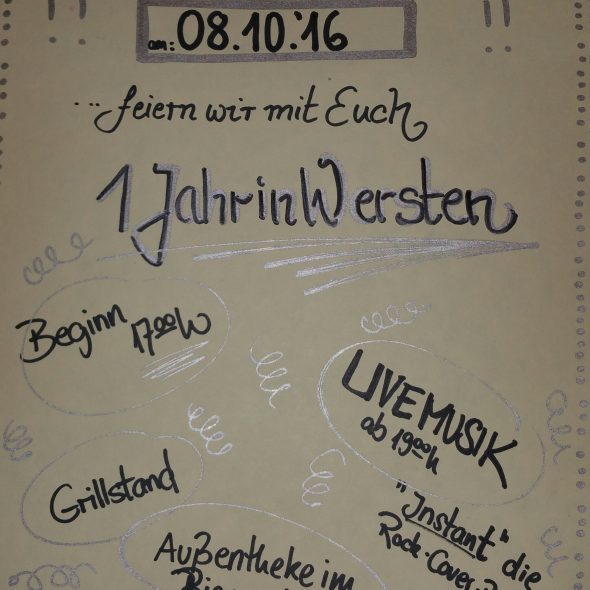 am: 08.10.'16
... feiern wir mit Euch
1 Jahr in Wersten
Beginn
17 00 W
LIVE MUSIK
ab 19 00 h
Grillstand
"Instant" die
Rock-Cover
Außentheke im